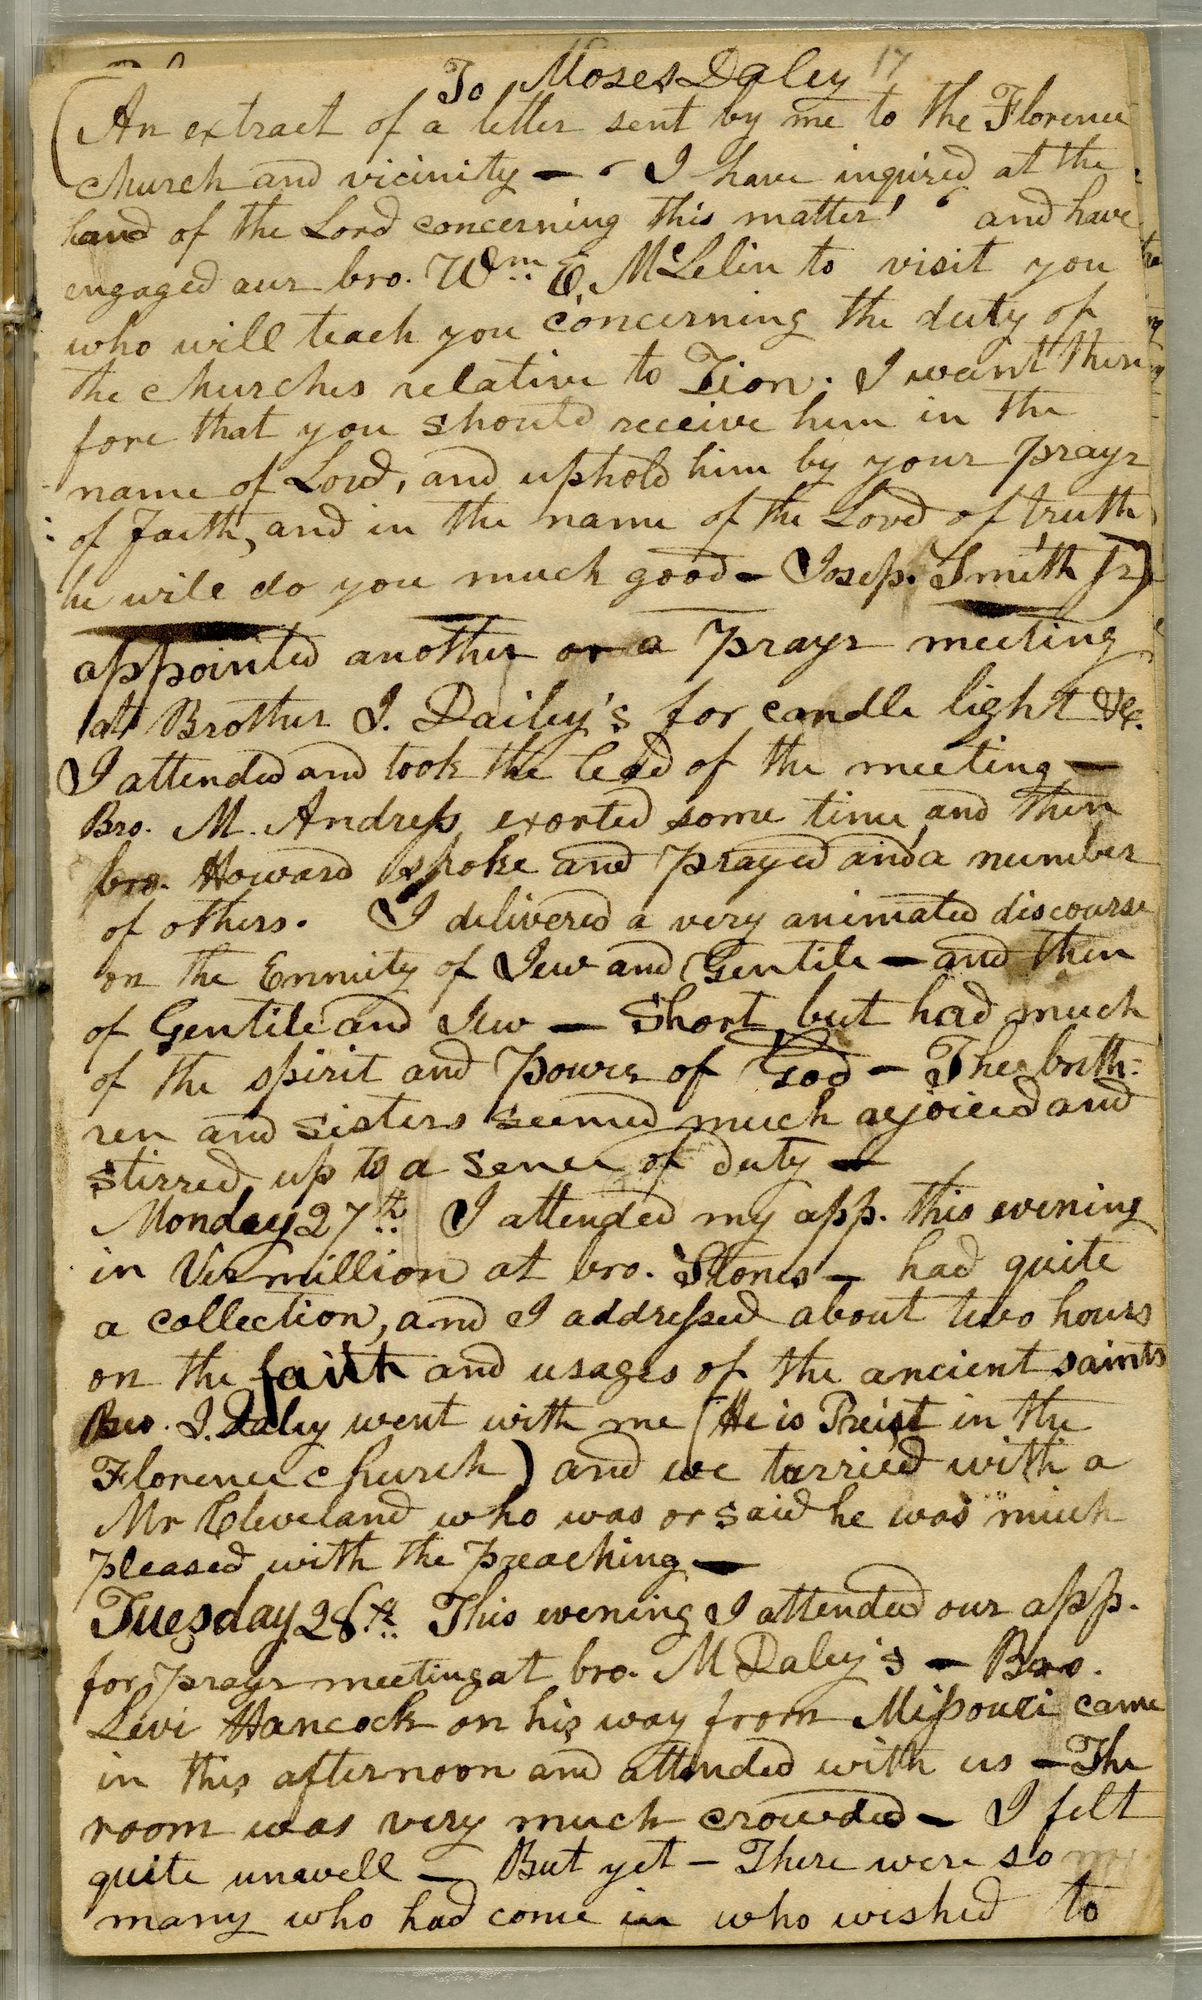 To Moses Daley 17
(An extract of a letter sent by me to the Florence
church and vicinity — "I have inquired at the
hand of the Lord concerning this matter' ' and have
engaged our bro. Wm. E. McLelin to visit you
who will teach you concerning the duty of
the churches relative to Zion. I want there
fore that you should receive him in the
name of Lord, and uphold him by your prayr
of Faith, and in the name of the Lord of truth
he will do you much good — Josep. Smith Jr)
appointed another or a prayr meeting
at Brother J. Dailey's for candle light &c.
I attended and took the lead of the meeting —
Bro. M. Andress exorted some time, and then
bro. Howard spoke and prayed and a number
of others. I delivered a very animated discourse
on the Enmity of Jew and Gentile — and then
of Gentile and Jew — Short, but had much
of the spirit and power of God — The breth=
ren and sisters seemed much rejoiced and
stirred up to a sence of duty —
Monday 27th. I attended my app. this evening
in Vermillion at bro. Stones — had quite
a collection, and I addressed about two hours
on the faith and usages of the ancient saints
Bro. J. Daley went with me (He is Preist in the
Florence church) and we tarried with a
Mr Cleveland who was or said he was much
pleased with the preaching —
Tuesday 28th. This evening I attended our app.
for prayr meeting at bro. M Daley's — Bro.
Levi Hancock on his way from Missouri came
in this afternoon and attended with us — The
room was very much crowded — I felt
quite unwell — But yet — There were so
many who had come in who wished to